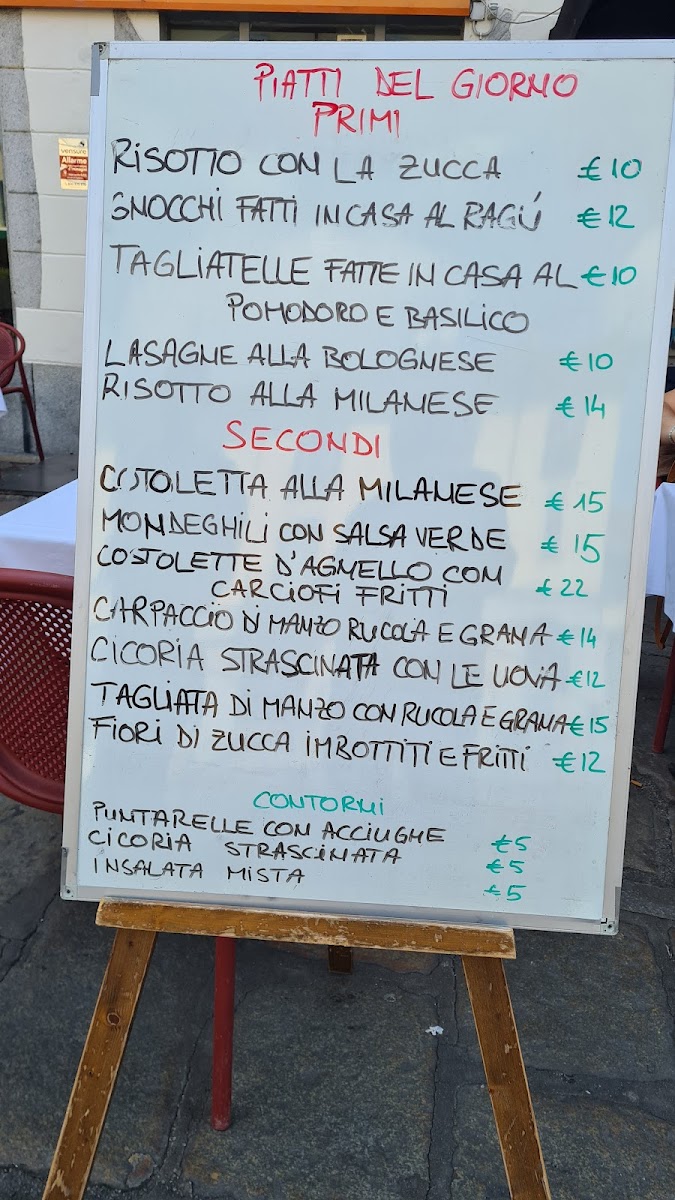 PIATTI DEL GIORNO
PRIMI
RISOTTO CON LA ZUCCA €10
GNOCCHI FATTI IN CASA AL RAGÚ €12
TAGLIATELLE FATTE IN CASA AL €10
POMODORO E BASILICO
LASAGNE ALLA BOLOGNESE €10
RISOTTO ALLA MILANESE €14
SECONDI
COSTOLETTA ALLA MILANESE €15
MONDEGHILI CON SALSA VERDE €15
COSTOLETTE D'AGNELLO CON
CARCIOFI FRITTI €22
CARPACCIO DI MANZO RUCOLA E GRANA €14
CICORIA STRASCINATA CON LE UOVA €12
TAGLIATA DI MANZO CON RUCOLA E GRANA €15
FIORI DI ZUCCA IMBOTTITI E FRITTI €12
CONTORNI
PUNTARELLE CON ACCIUGHE €5
CICORIA STRASCINATA €5
INSALATA MISTA €5
verisure
Allarme